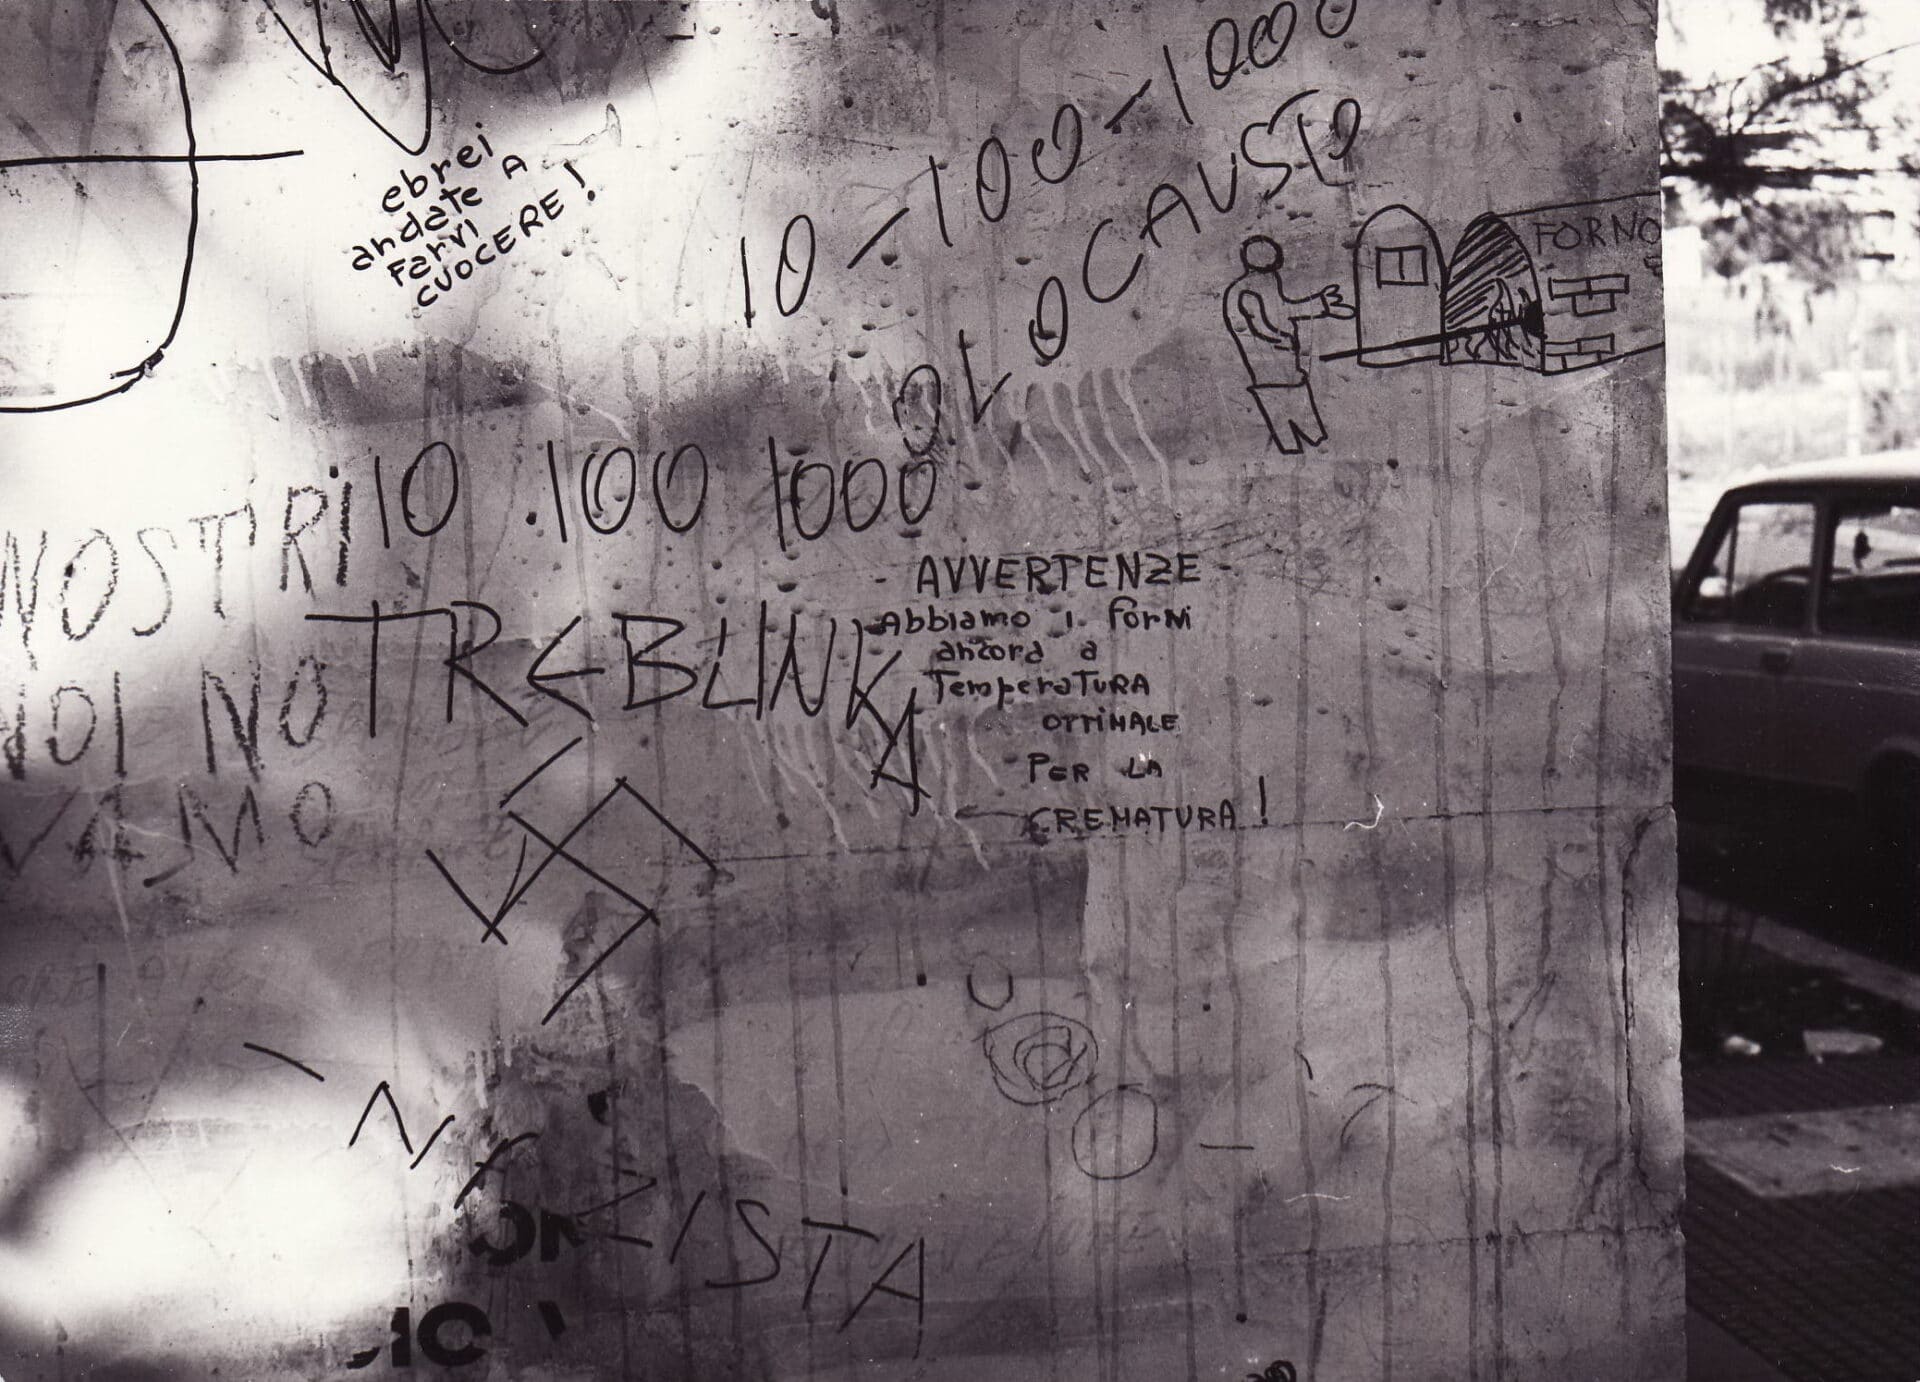 ebrei
andate A
Farvi
CUOCERE!
10-100-1000
OLOCAUSTO
FORNO
NOSTRi
NOI NO
VAMO
10 100 1000
TREBLINKA
- AVVERTENZE -
Abbiamo i forni
ancora a
TemperaTURA
OTTIMALE
PER LA
CREMATURA!
NAZISTA